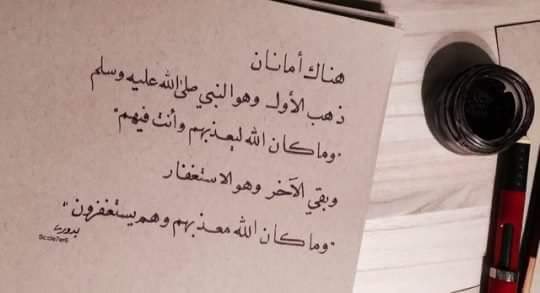 هناك أمانان
ذهب الأول وهو النبي صلى الله عليه وسلم
"وما كان الله ليعذبهم وأنت فيهم"
وبقي الآخر وهو الاستغفار
"وما كان الله معذبهم وهم يستغفرون"